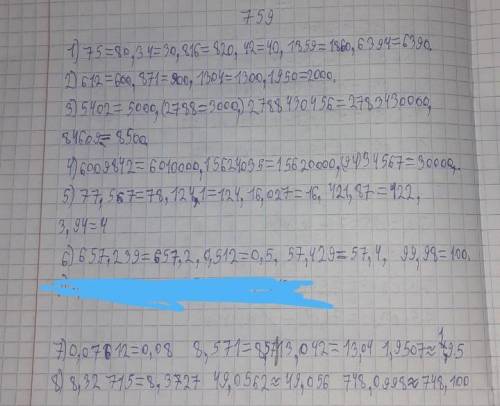 759
1) 75=80, 34=30, 816=820, 42=40, 1859=1860, 6394=6390.
2) 612=600, 871=900, 1304=1300, 1950=2000.
3) 5402=5000, (2788=3000,) 2788430456=2783430000,
84609=8500,
4) 6009842=6010000, 15624039=15620000, (94)34567=30000,
5) 77,567=78, 124,1=124, 16,027=16, 421,87=422,
3,94=4
6) 657,239=657,2, 0,512=0,5, 57,429=57,4, 99,98=100.
7) 0,07612=0,08 8,571=8,57 13,042=13,04 1,9507≈1,95
8) 8,32715=8,3727 49,0562≈49,056 748,0998≈748,100